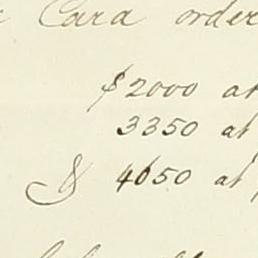 Cara order
$2000 at
3350 at
& 4650 at